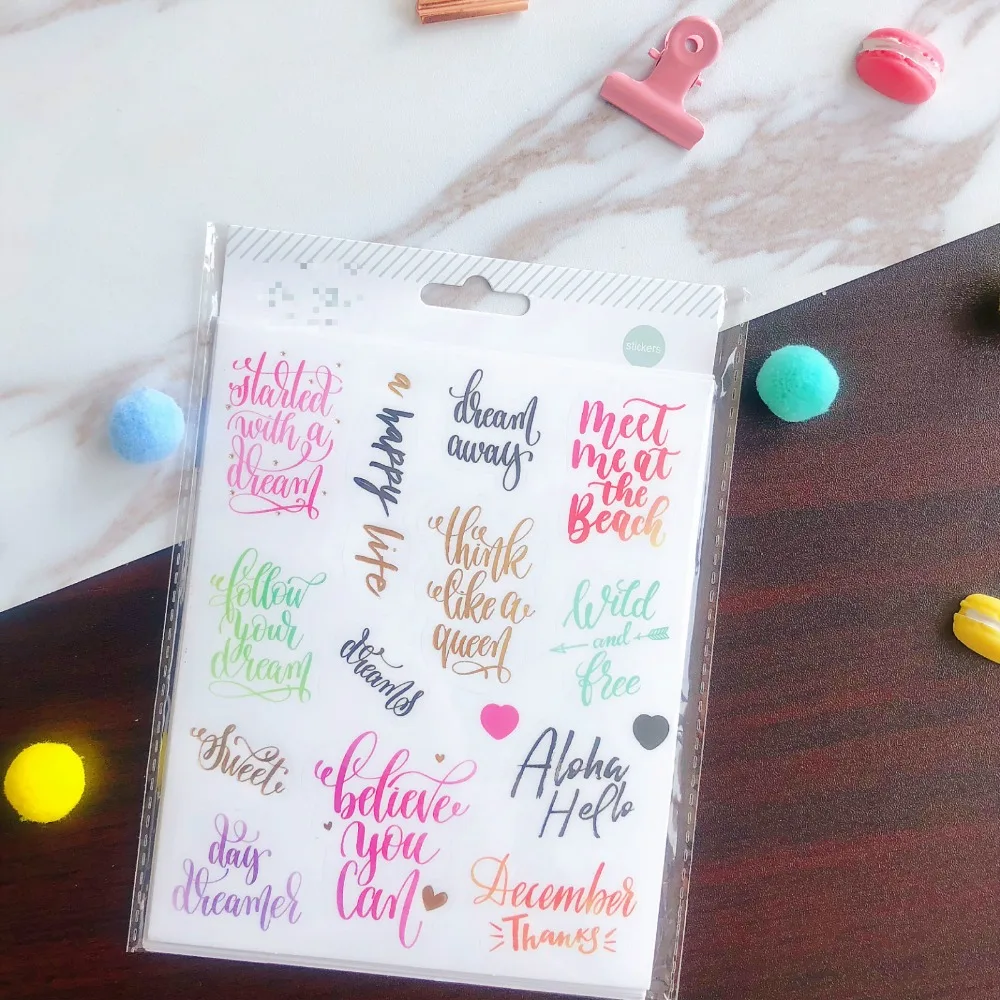 stickers
started
with a
dream
a happy life
dream
away
meet
me at
the
Beach
think
like a
queen
follow
your
dream
do
dreams
Wild
and
free
Sweet
believe
you
can
Aloha
Hello
day
dreamer
December
Thanks